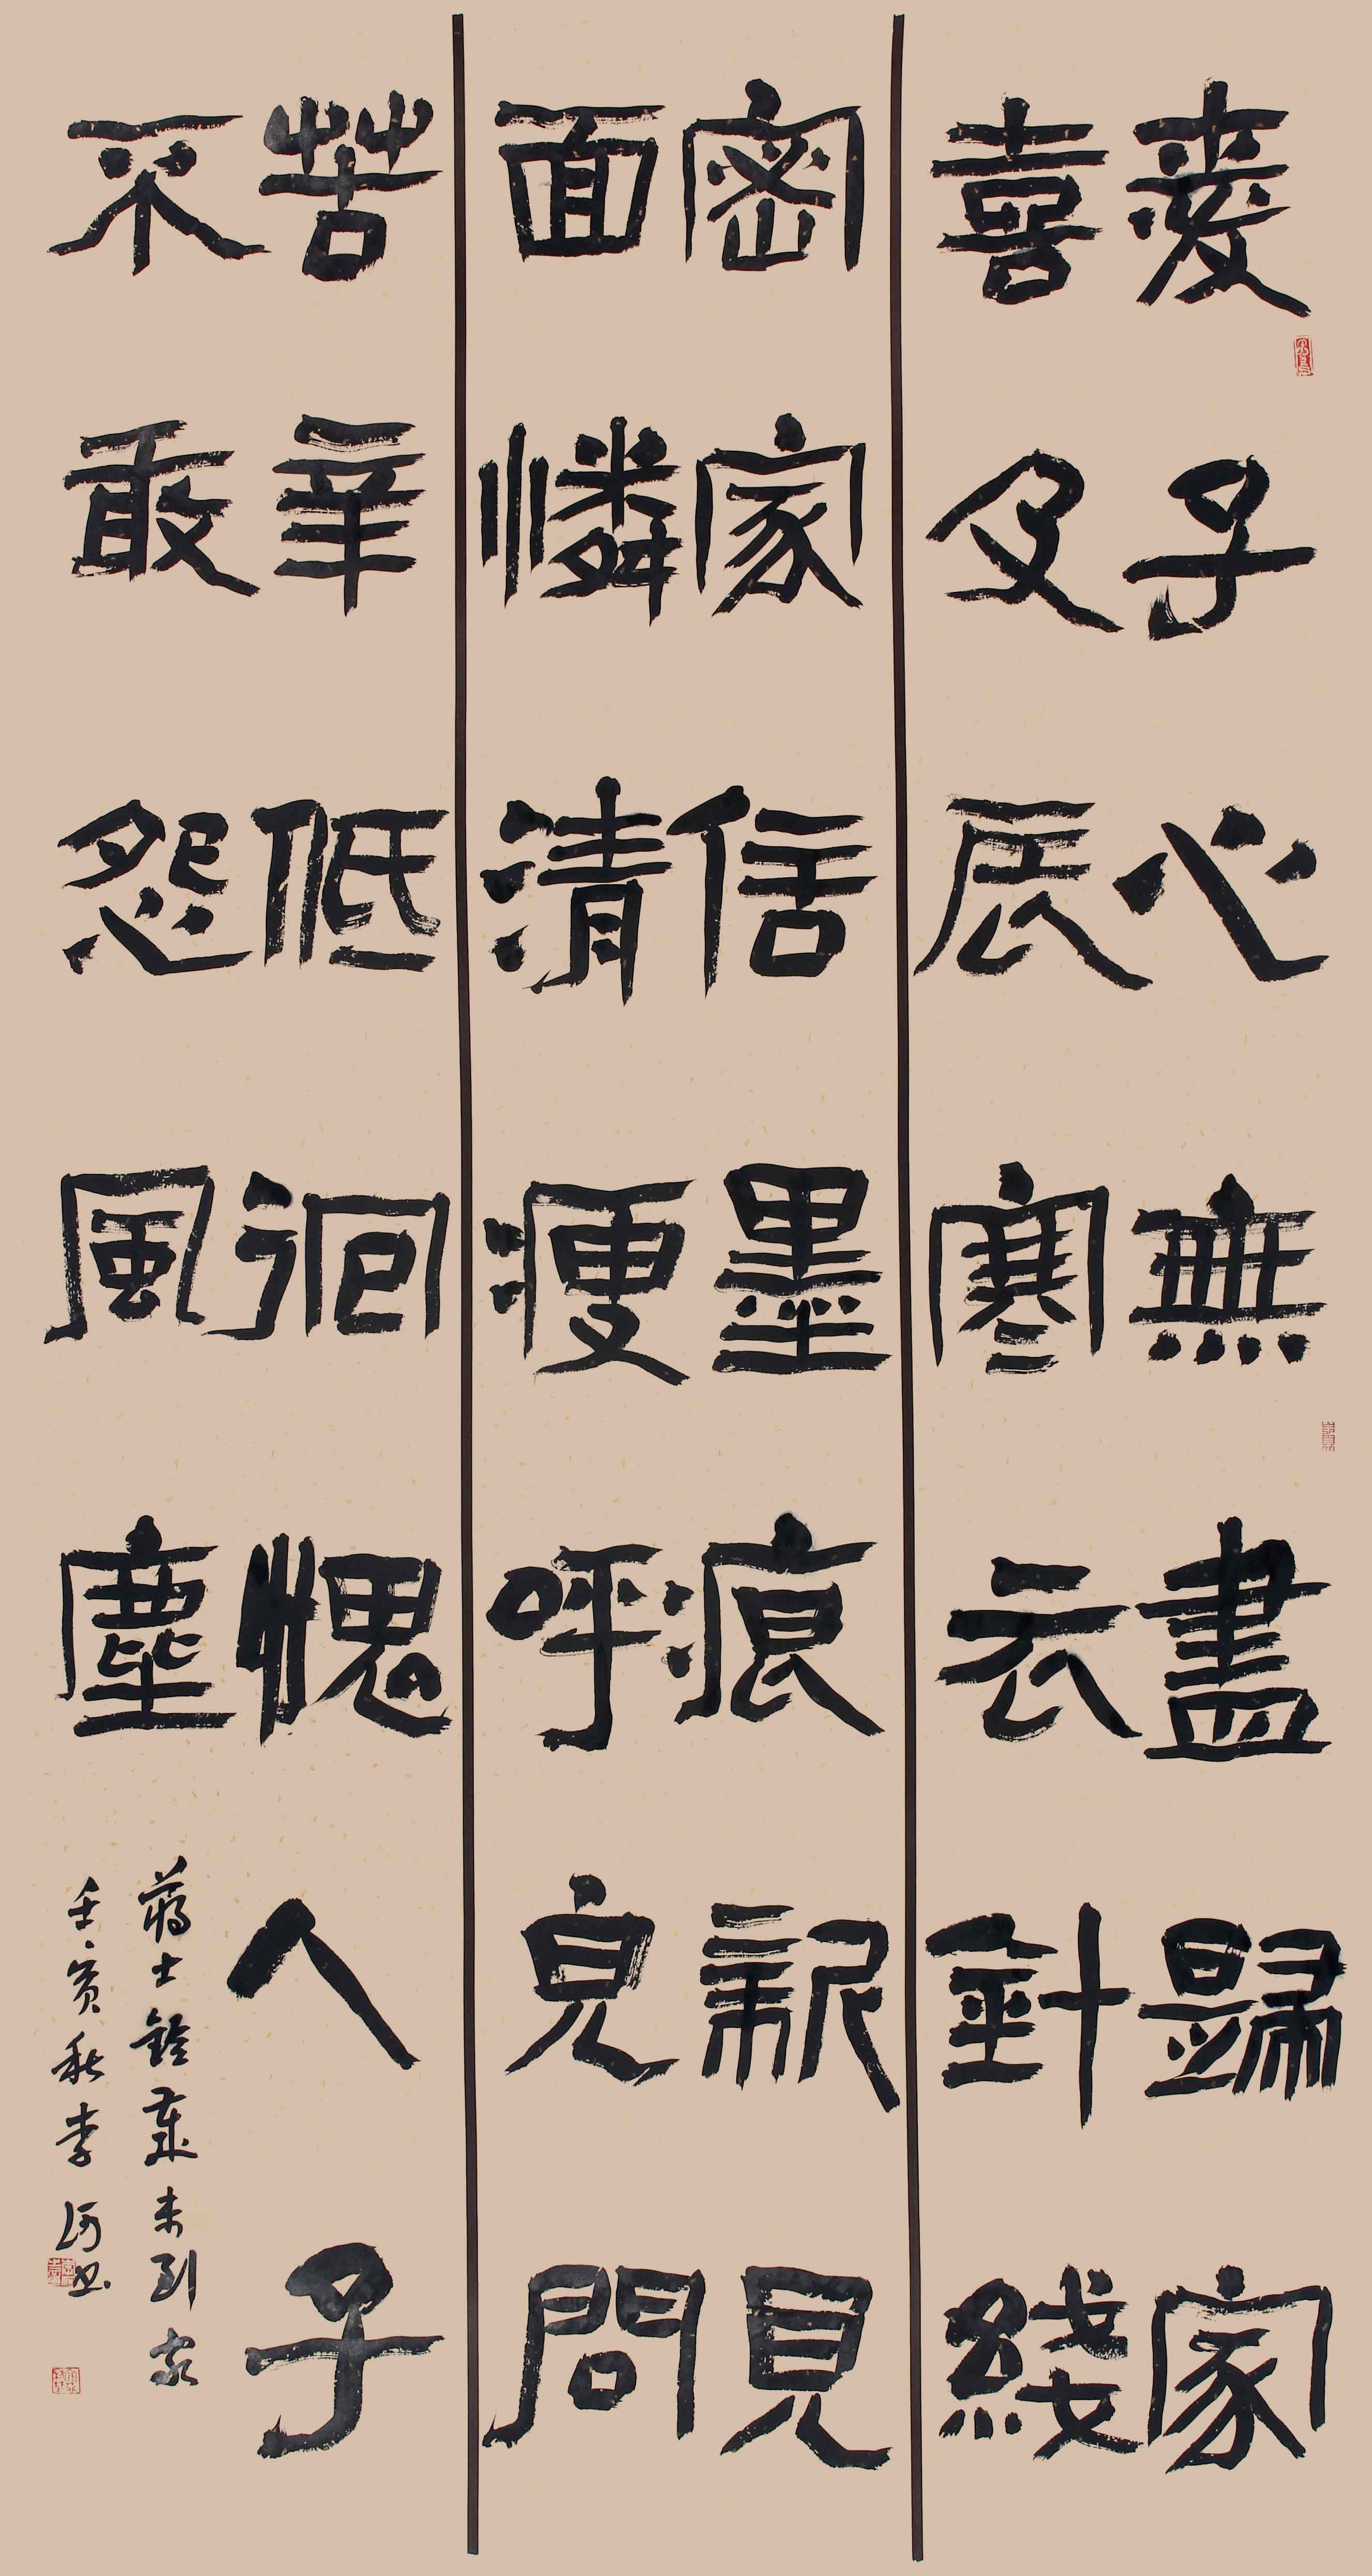 愛子心無盡歸家
喜及辰寒衣針綫
密家信墨痕新見
面憐清瘦呼兒問
苦辛低徊愧人子
不敢怨風塵
蔣士銓歲末到家
壬寅秋李書